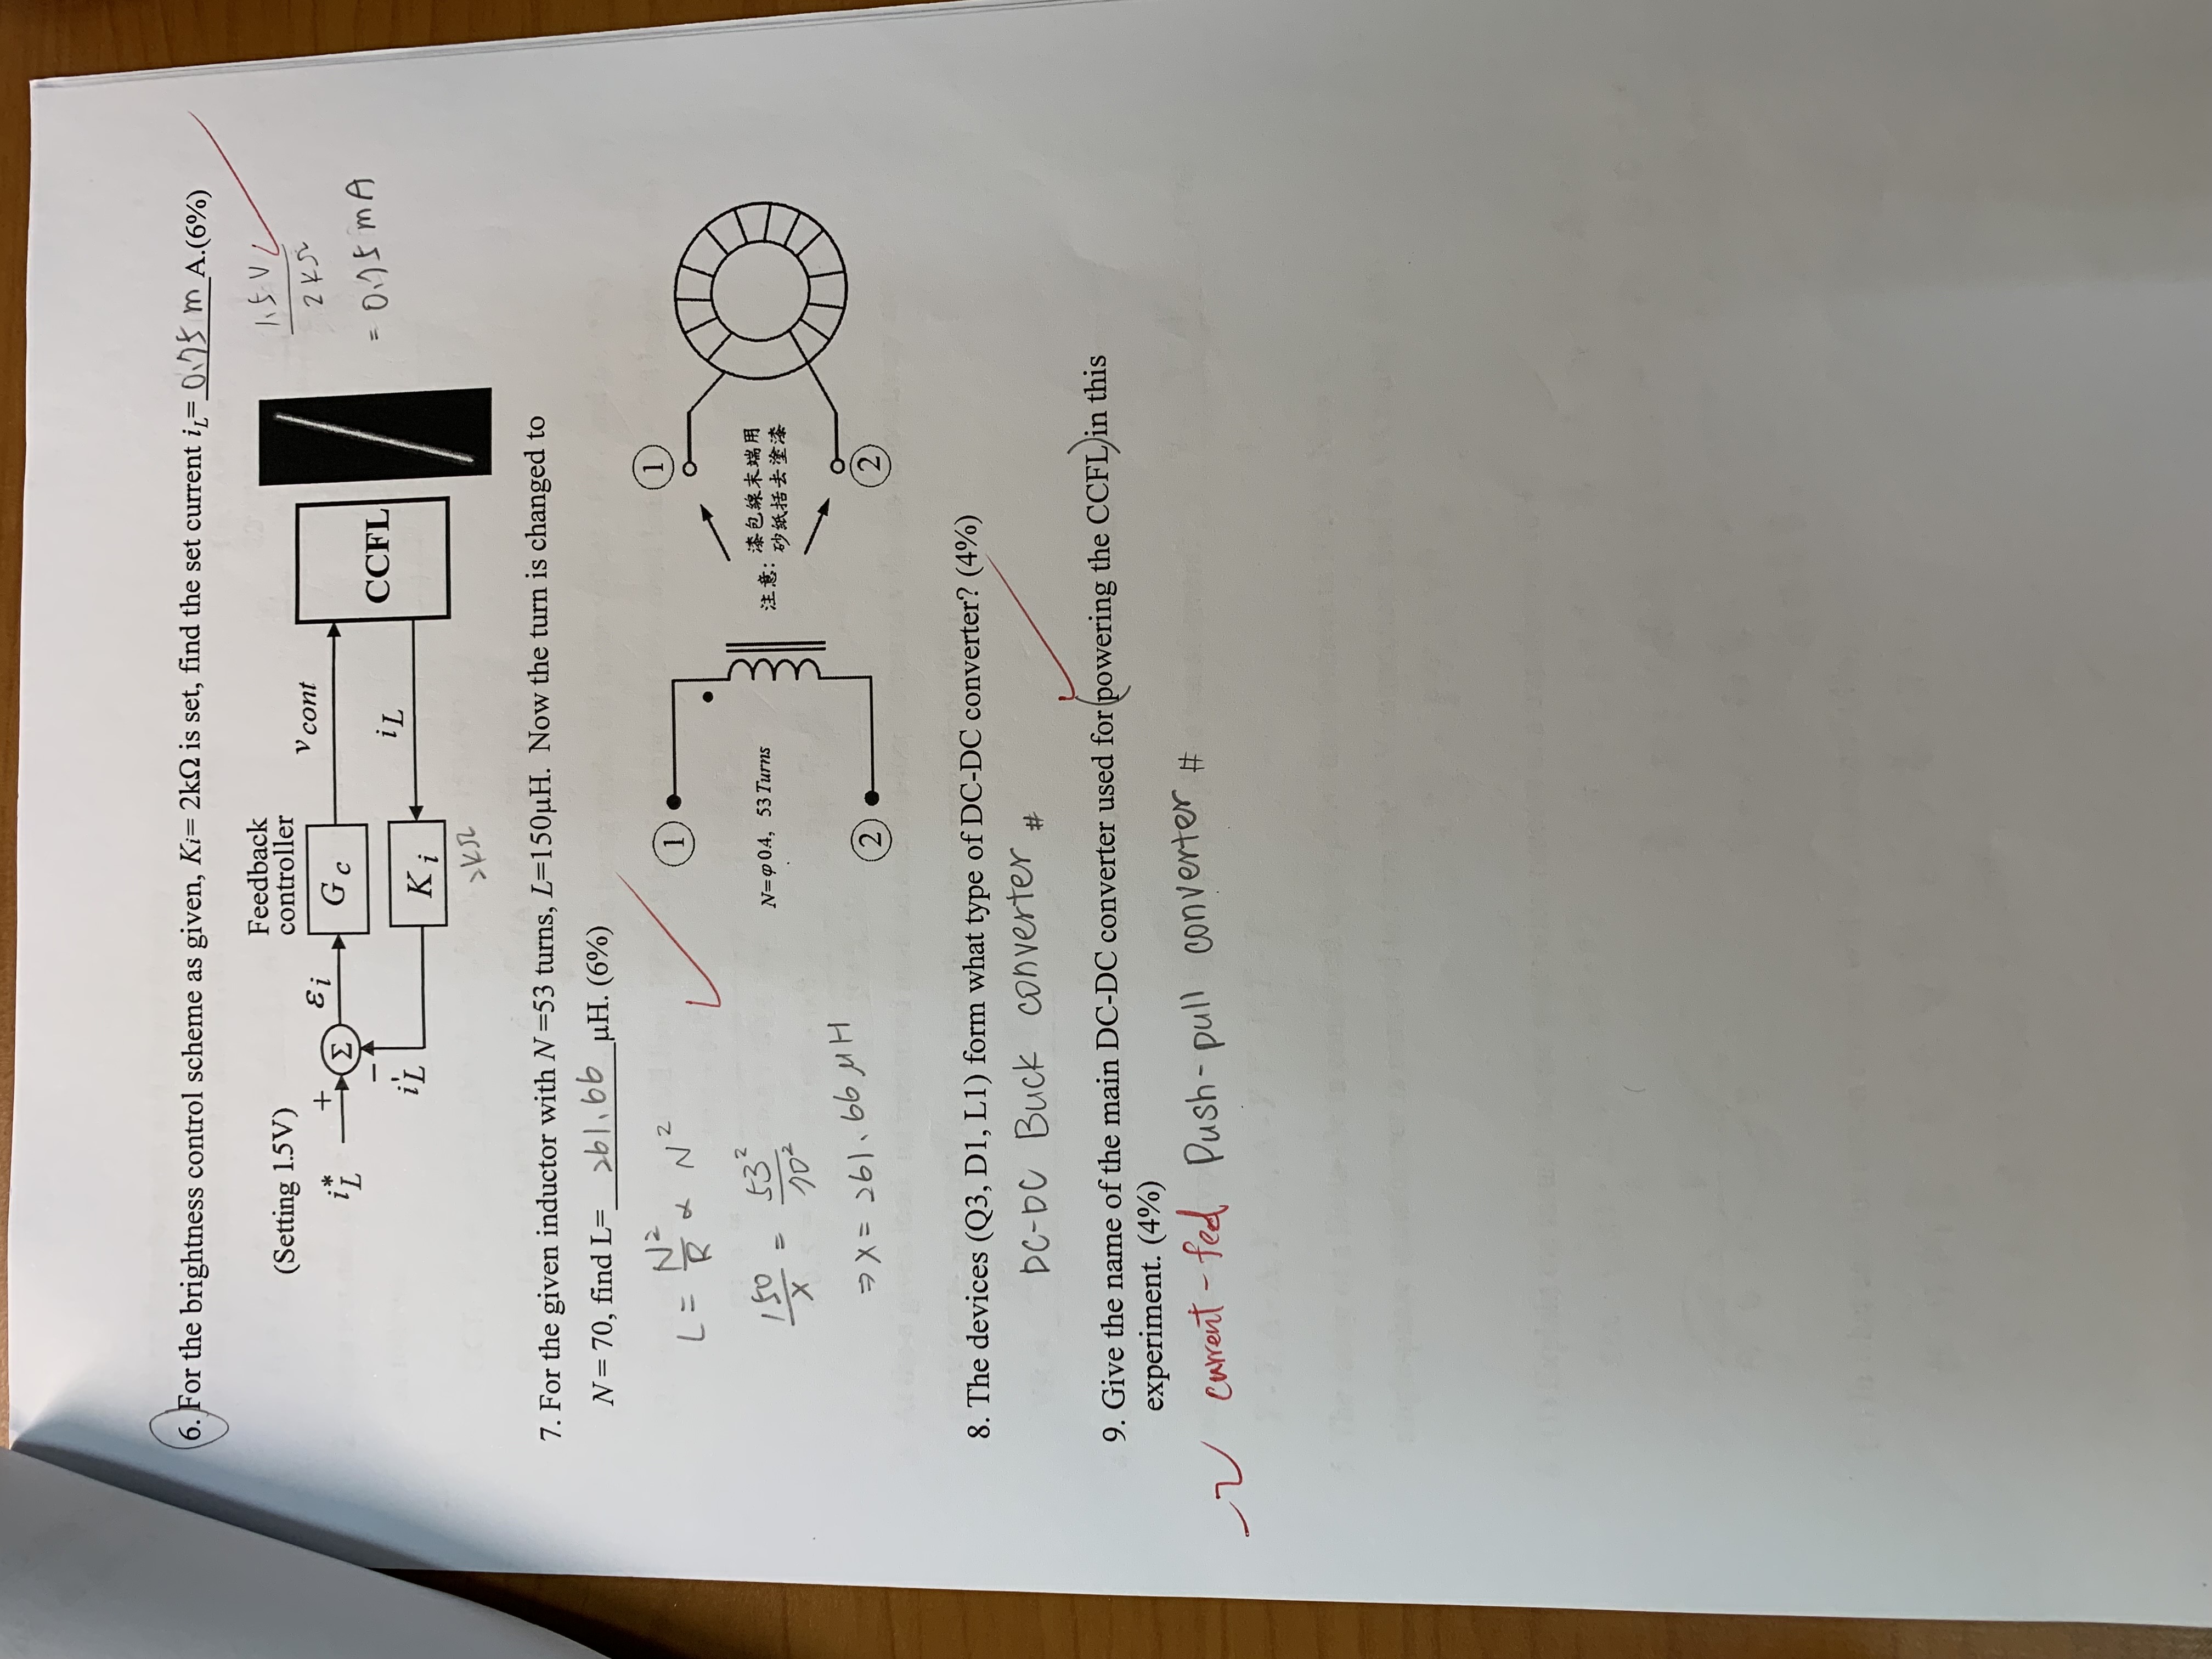 6. For the brightness control scheme as given, Ki= 2kΩ is set, find the set current iL= 0.75 m A.(6%)
(Setting 1.5V)
Feedback
controller
iL*
+
Σ
−
εi
Gc
vcont
CCFL
i'L
Ki
iL
2kΩ
1.5 V
2 kΩ
= 0.75 mA
7. For the given inductor with N=53 turns, L=150μH. Now the turn is changed to
N= 70, find L= 261.66 μH. (6%)
L = N²/R ∝ N²
150/X = 53²/70²
⇒ X = 261.66 μH
①
②
N=φ0.4, 53 Turns
注意: 漆包線末端用
砂紙括去塗漆
①
②
8. The devices (Q3, D1, L1) form what type of DC-DC converter? (4%)
DC-DC Buck converter #
9. Give the name of the main DC-DC converter used for (powering the CCFL) in this
experiment. (4%)
-2 current-fed Push-pull converter #